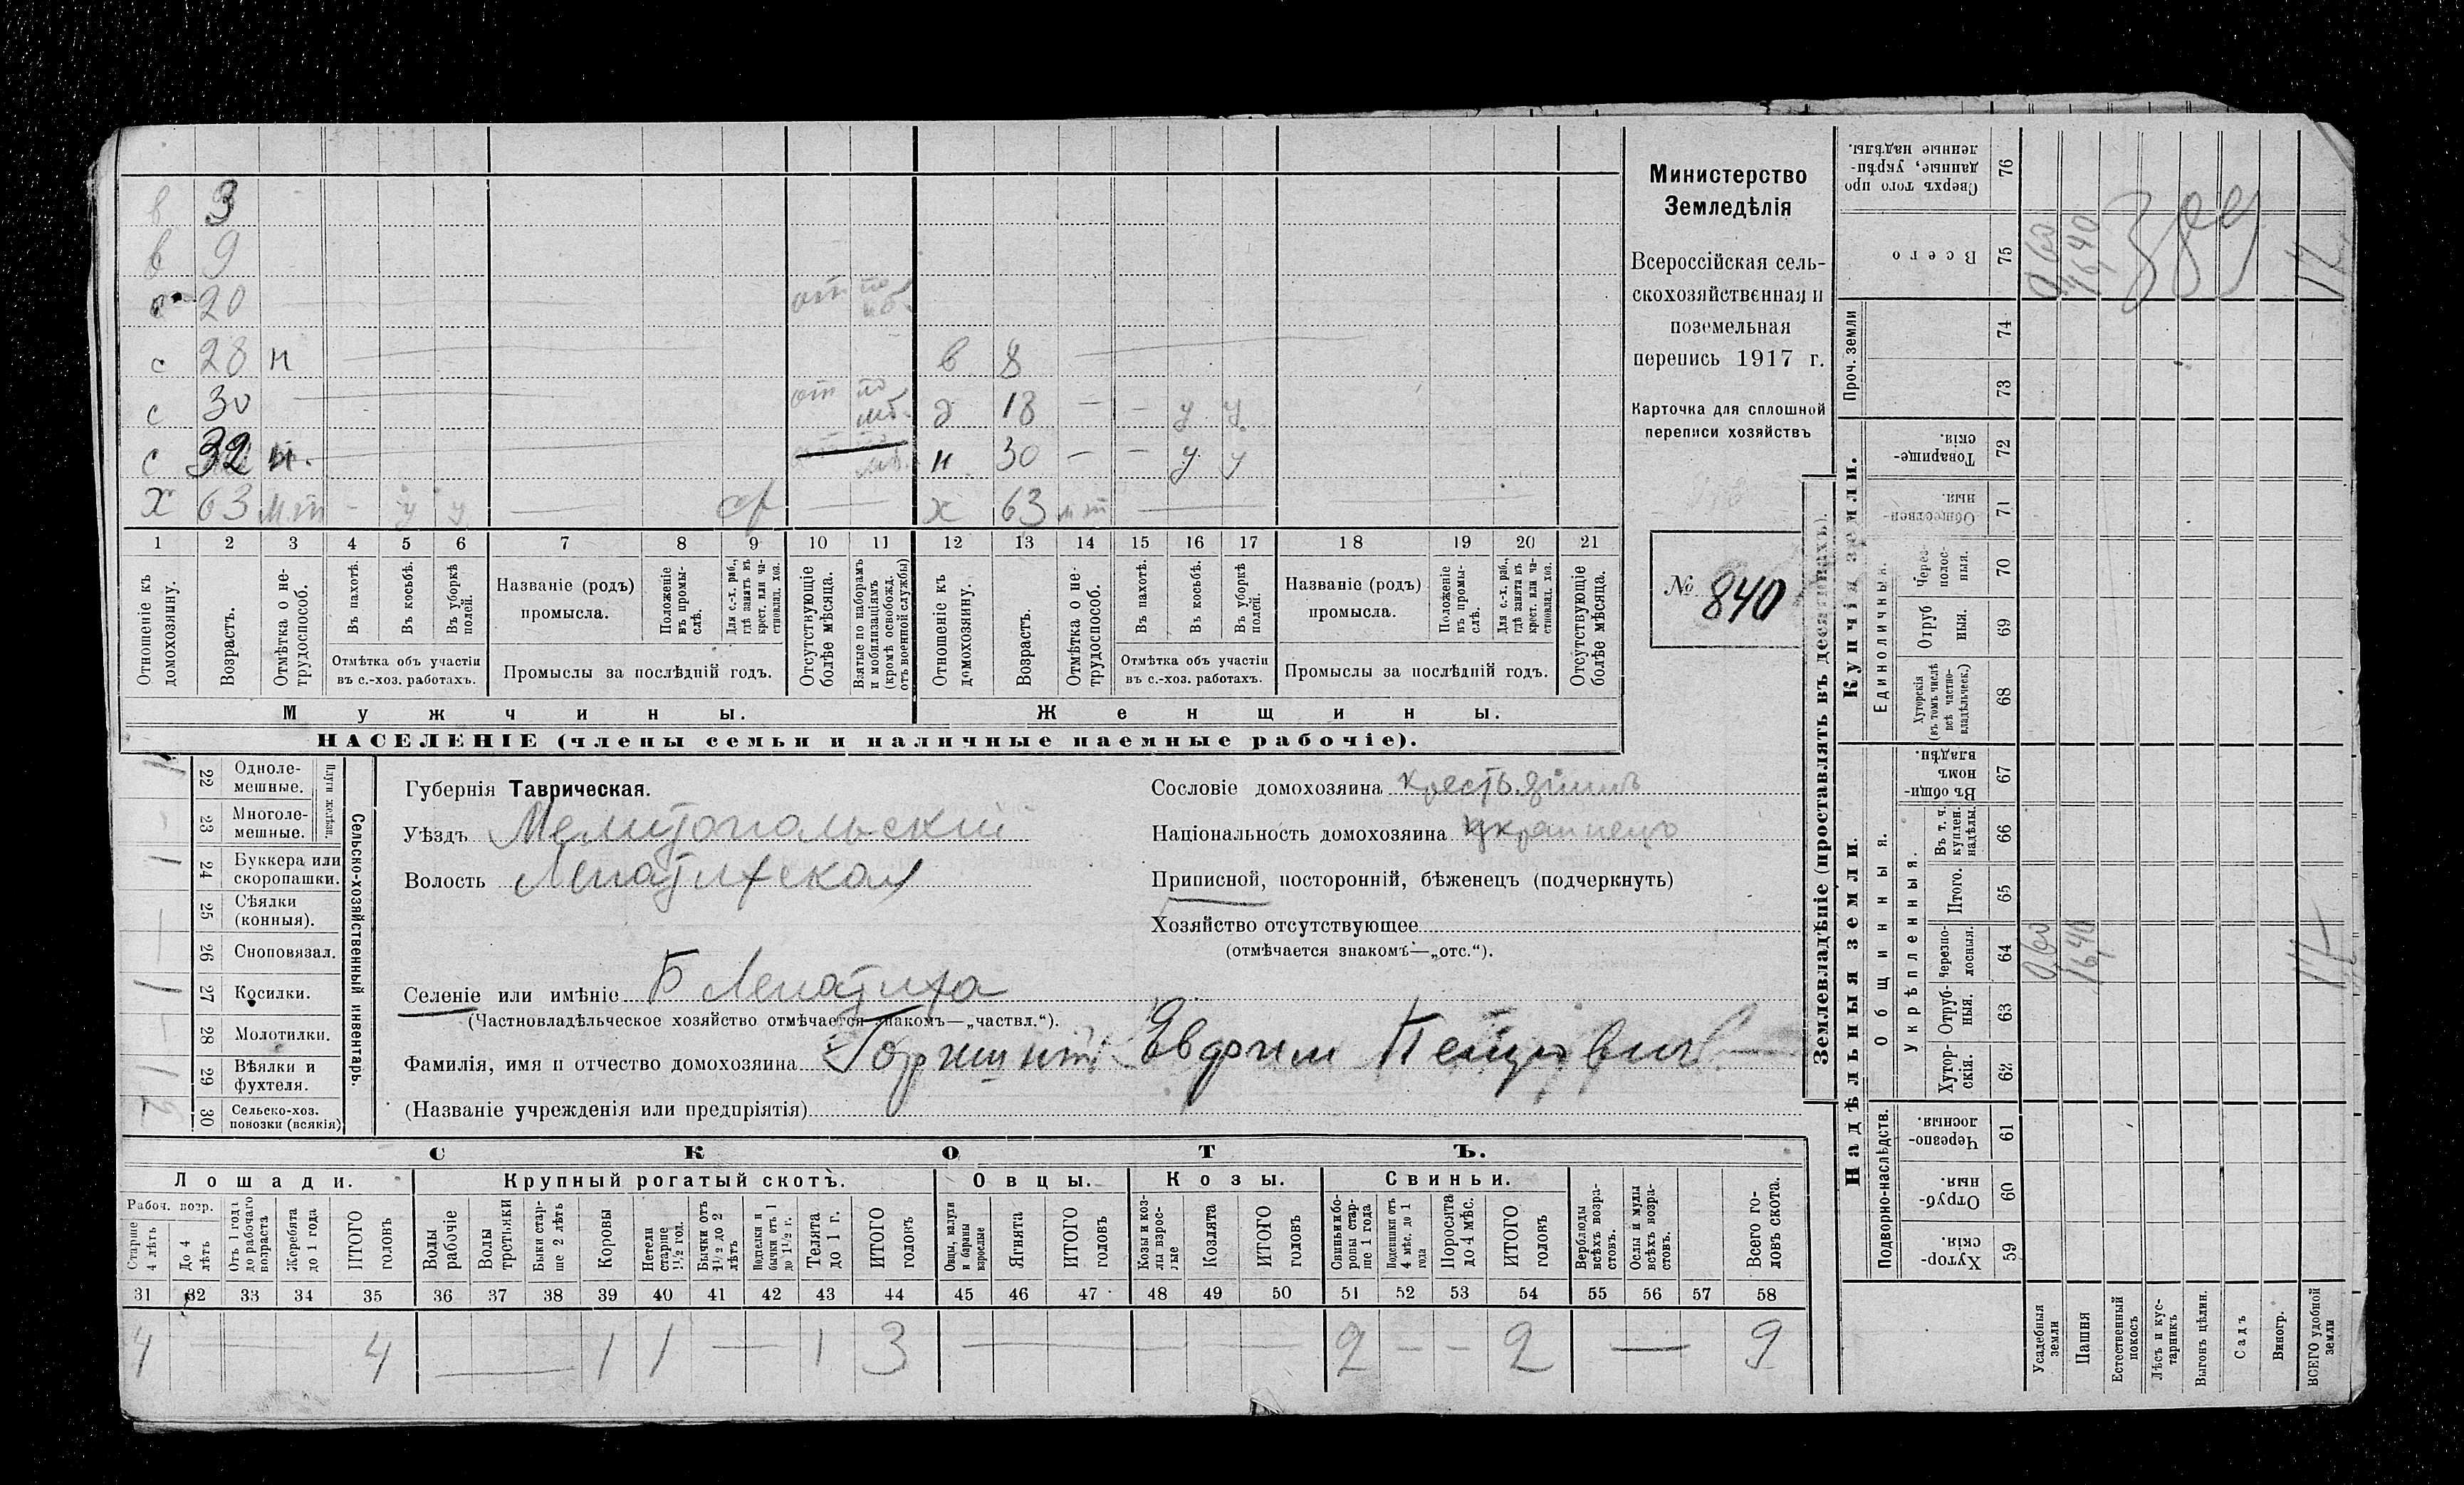 в 3
в 9
с 20 от по мб.
с 28 н в 8
с 30 от по мб. д 18 — — у у
с 32 н. н 30 — — у у
х 63 мт - у у — ср — х 63 мт —
1 2 3 4 5 6 7 8 9 10 11 12 13 14 15 16 17 18 19 20 21
Отношеніе къ домохозяину.
Возрастъ.
Отмѣтка о нетрудоспособ.
Въ пахотѣ.
Въ косьбѣ.
Въ уборкѣ полей.
Отмѣтка объ участіи
въ с.-хоз. работахъ.
Названіе (родъ)
промысла.
Положеніе въ промыслѣ.
Для с.-х. раб., гдѣ занятъ въ крест. или частновлад. хоз.
Промыслы за послѣдній годъ.
Отсутствующіе болѣе мѣсяца.
Взятые по наборамъ и мобилизаціямъ (кромѣ освобожд. отъ военной службы)
Отношеніе къ домохозяину.
Возрастъ.
Отмѣтка о нетрудоспособ.
Въ пахотѣ.
Въ косьбѣ.
Въ уборкѣ полей.
Отмѣтка объ участіи
въ с.-хоз. работахъ.
Названіе (родъ)
промысла.
Положеніе въ промыслѣ.
Для с.-х. раб., гдѣ занята въ крест. или частновлад. хоз.
Промыслы за послѣдній годъ.
Отсутствующіе болѣе мѣсяца.
Мужчины. Женщины.
НАСЕЛЕНІЕ (члены семьи и наличные наемные рабочіе).
Министерство
Земледѣлія
Всероссійская сель-
скохозяйственная и
поземельная
перепись 1917 г.
Карточка для сплошной
переписи хозяйствъ
№ 840
Сельско-хозяйственный инвентарь.
Плуги желѣзн.
22 Одноле-
мешные.
23 Многоле-
мешные.
24 Буккера или
скоропашки.
25 Сѣялки
(конныя).
26 Сноповязал.
27 Косилки.
28 Молотилки.
29 Вѣялки и
фухтеля.
30 Сельско-хоз.
повозки (всякія)
Губернія Таврическая.
Уѣздъ Мелитопольскій
Волость Лепатихская
Селеніе или имѣніе Б Лепатиха
(Частновладѣльческое хозяйство отмѣчается знакомъ—„частвл.“).
Сословіе домохозяина крестьянинъ
Національность домохозяина украинецъ
Приписной, посторонній, бѣженецъ (подчеркнуть)
Хозяйство отсутствующее
(отмѣчается знакомъ—„отс.“).
Фамилія, имя и отчество домохозяина Горшитъ Евфим Петрович
(Названіе учрежденія или предпріятія)
СКОТЪ.
Лошади. Крупный рогатый скотъ. Овцы. Козы. Свиньи.
Рабоч. возр.
Старше 4 лѣтъ
До 4 лѣтъ
Отъ 1 года до рабочаго возраста
Жеребята до 1 года
ИТОГО головъ
Волы рабочіе
Волы третьяки
Быки старше 2 лѣтъ
Коровы
Нетели старше 1½ год.
Бычки отъ 1½ до 2 лѣтъ
Подтелки и бычки отъ 1 до 1½ г.
Телята до 1 г.
ИТОГО головъ
Овцы, валухи и бараны взрослые
Ягнята
ИТОГО головъ
Козы и козлы взрослые
Козлята
ИТОГО головъ
Свиньи и боровы старше 1 года
Подсвинки отъ 4 мѣс. до 1 года
Поросята до 4 мѣс.
ИТОГО головъ
Верблюды всѣхъ возрастовъ.
Ослы и мулы всѣхъ возрастовъ.
Всего головъ скота.
31 32 33 34 35 36 37 38 39 40 41 42 43 44 45 46 47 48 49 50 51 52 53 54 55 56 57 58
4 — 4 — 1 1 — 1 3 — — 2 — — 2 — 9
Землевладѣніе (проставлять въ десятинахъ).
Надѣльныя земли. Купчія земли. Проч. земли
Подворно-наслѣдств.
Общинныя.
Укрѣпленныя.
Единоличныя.
59 Хутор-
скія.
60 Отруб-
ныя.
61 Черезпо-
лосныя.
62 Хутор-
скія.
63 Отруб-
ныя.
64 Черезпо-
лосныя.
65 Итого.
66 Въ т. ч. куплен. надѣлы.
67 Въ общин-
номъ
владѣн.
68 Хуторскія (въ томъ числѣ всѣ частно-владѣльчск.)
69 Отруб
ныя.
70 Через-
полос-
ныя.
71 Обществен-
ныя.
72 Товарище-
скія.
73
74
75 Всего
76 Сверхъ того про
данные, укрѣп-
ленные надѣлы.
Усадебныя земли
Пашня
Естественный покосъ
Лѣсъ и кустарникъ
Выгонъ цѣлин.
Садъ
Виногр.
ВСЕГО удобной земли
0,60 16,40 17
0,60 16,40 17